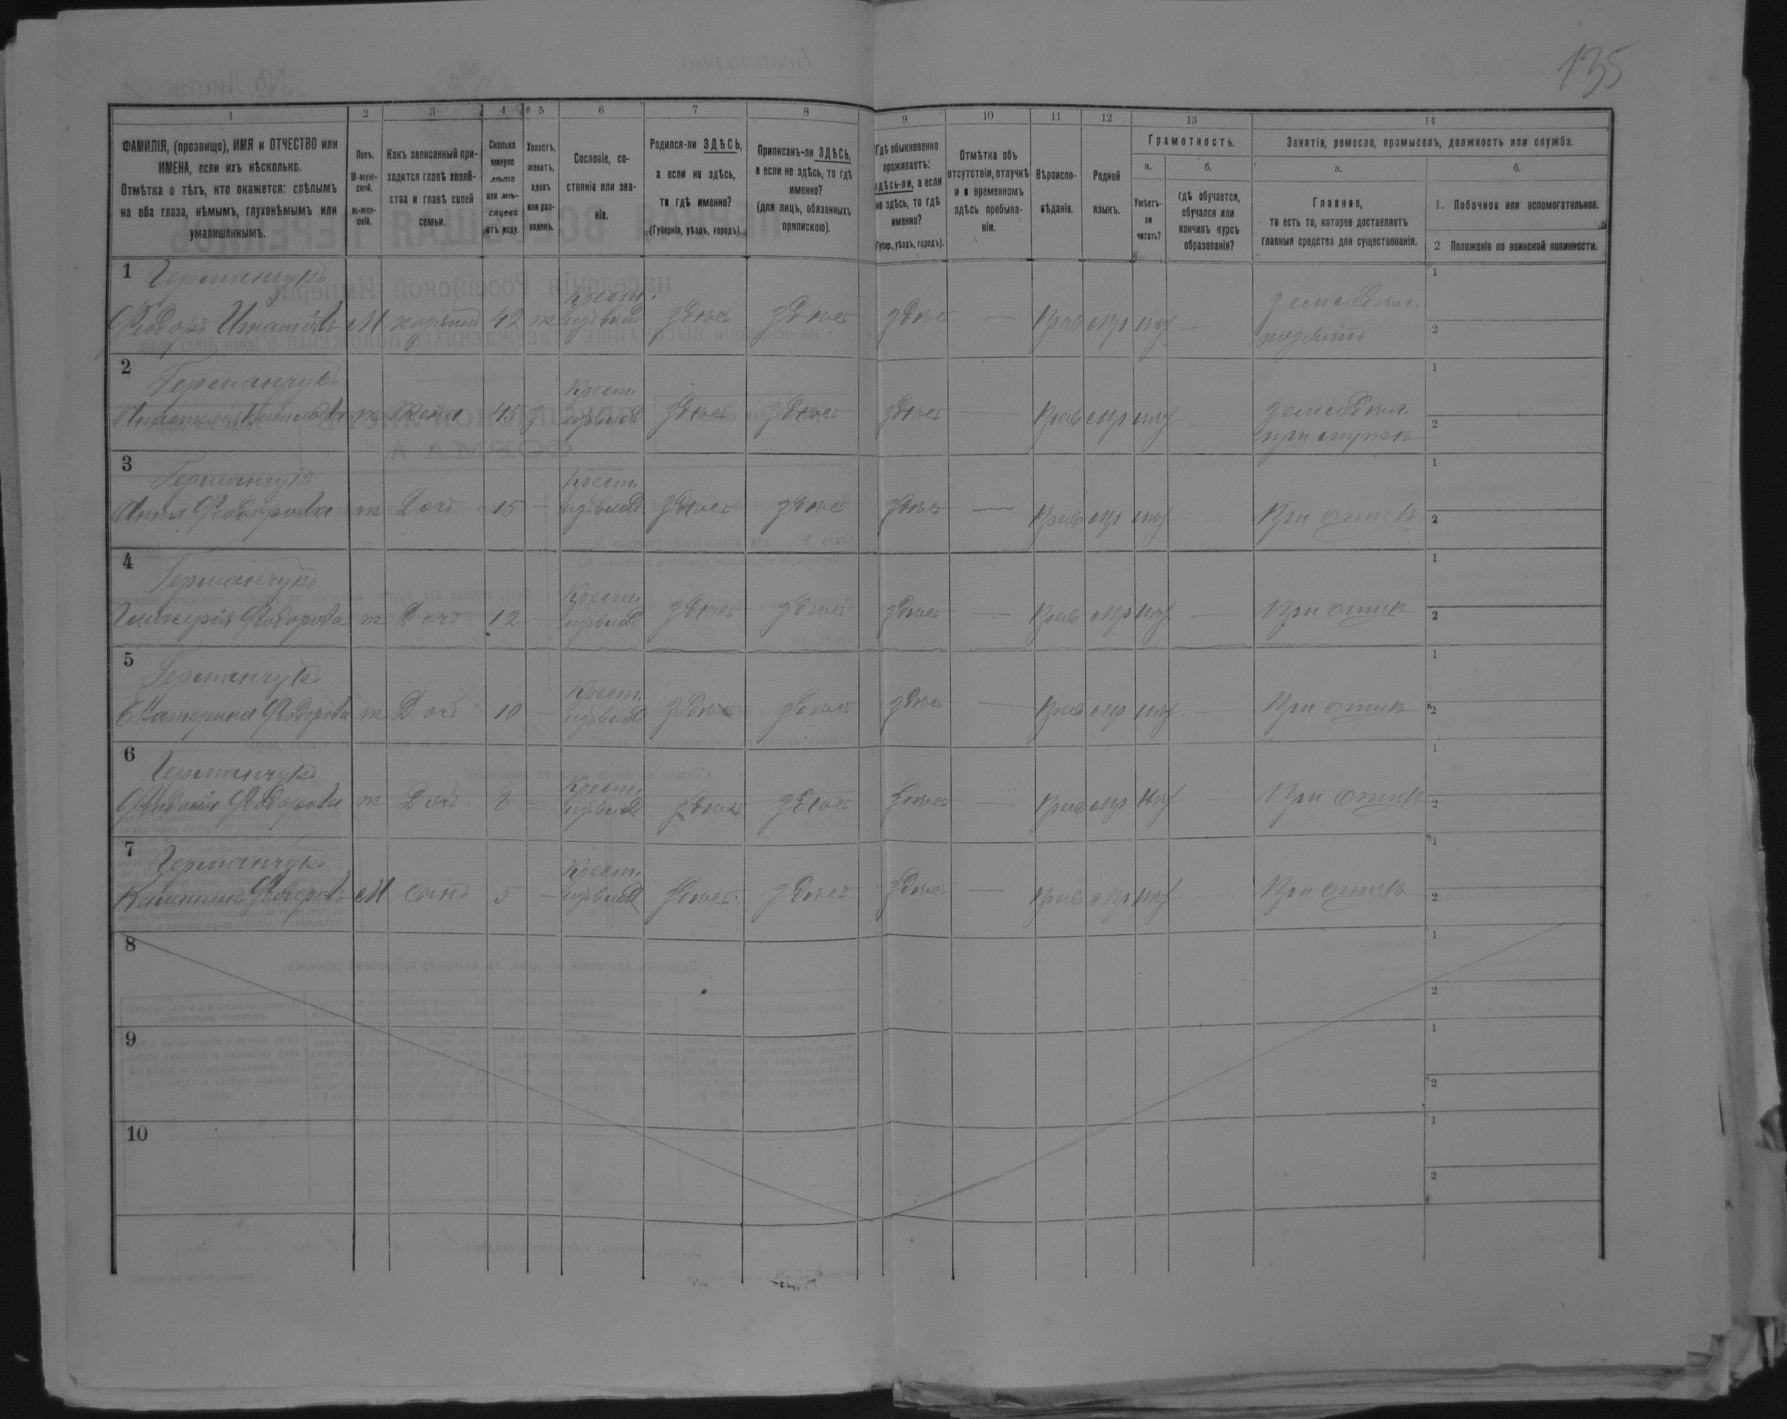 135
1 2 3 4 5 6 7 8 9 10 11 12 13 14
ФАМИЛІЯ, (прозвище), ИМЯ и ОТЧЕСТВО или
ИМЕНА, если ихъ нѣсколько.
Отмѣтка о тѣхъ, кто окажется: слѣпымъ
на оба глаза, нѣмымъ, глухонѣмымъ или
умалишеннымъ.
Полъ.
М-муж-
ской.
ж-жен-
скій.
Какъ записанный при-
ходится главѣ хозяй-
ства и главѣ своей
семьи.
Сколько
минуло
лѣтъ
или мѣ-
сяцевъ
отъ роду.
Холостъ,
женатъ,
вдовъ
или раз-
веденъ.
Сословіе, со-
стояніе или зва-
ніе.
Родился-ли ЗДѢСЬ,
а если не здѣсь,
то гдѣ именно?
(Губернія, уѣздъ, городъ).
Приписанъ-ли ЗДѢСЬ,
а если не здѣсь, то гдѣ
именно?
(для лицъ, обязанныхъ
припискою).
Гдѣ обыкновенно
проживаетъ:
здѣсь-ли, а если
не здѣсь, то гдѣ
именно?
(Губер., уѣздъ, городъ).
Отмѣтка объ
отсутствіи, отлучкѣ
и о временномъ
здѣсь пребыва-
ніи.
Вѣроиспо-
вѣданіе.
Родной
языкъ.
Грамотность.
а. б.
Умѣетъ-
ли
читать?
гдѣ обучается,
обучался или
кончилъ курсъ
образованія?
Занятіе, ремесло, промыселъ, должность или служба.
а. б.
Главное,
то есть то, которое доставляетъ
главныя средства для существованія.
1. Побочное или вспомогательное.
2 Положеніе по воинской повинности.
1 Германчукъ Крест. земледѣл. 1
Ѳеодоръ Игнатьевъ М хозяинъ 42 ж здѣсь здѣсь здѣсь — Прав нѣт — хозяинъ 2
2 Германчукъ Крест. земледѣл. 1
Анастасія ж Жена 45 здѣсь здѣсь здѣсь — Прав нѣт — при мужѣ 2
3 Германчукъ Крест. 1
Анна Ѳеодорова ж Дочь 15 — здѣсь здѣсь здѣсь — Прав нѣт — При отцѣ 2
4 Германчукъ Крест. 1
Гликерія Ѳеодорова ж Дочь 12 — здѣсь здѣсь здѣсь — Прав нѣт — При отцѣ 2
5 Германчукъ Крест. 1
Екатерина Ѳеодорова ж Дочь 10 — здѣсь здѣсь здѣсь — Прав нѣт — При отцѣ 2
6 Германчукъ Крест. 1
Ѳеодосія Ѳеодорова ж Дочь 8 — здѣсь здѣсь здѣсь — Прав нѣт При отцѣ 2
7 Германчукъ Крест. 1
Ѳеодоровъ М сынъ 5 — здѣсь здѣсь здѣсь — Прав нѣт При отцѣ 2
8 1
2
9 1
2
10 1
2